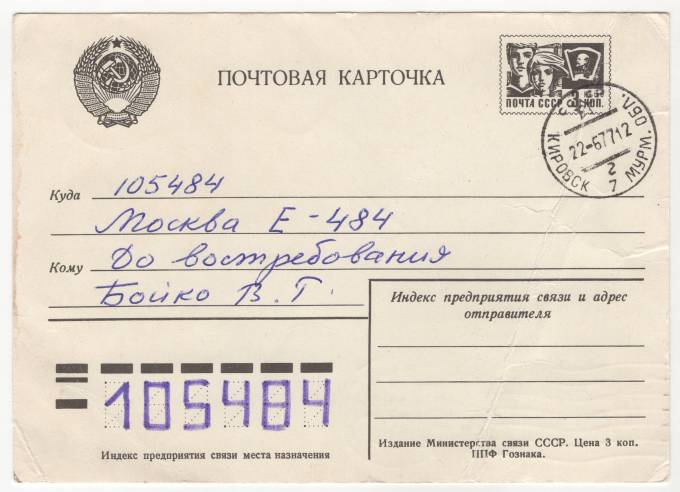 ПОЧТОВАЯ КАРТОЧКА
ПОЧТА СССР КОП.
КИРОВСК 7 МУРМ. ОБЛ.
22-67712
2
Куда 105484
Москва Е-484
Кому До востребования
Бойко В. Г.
Индекс предприятия связи и адрес
отправителя
105484
Индекс предприятия связи места назначения
Издание Министерства связи СССР. Цена 3 коп.
ППФ Гознака.